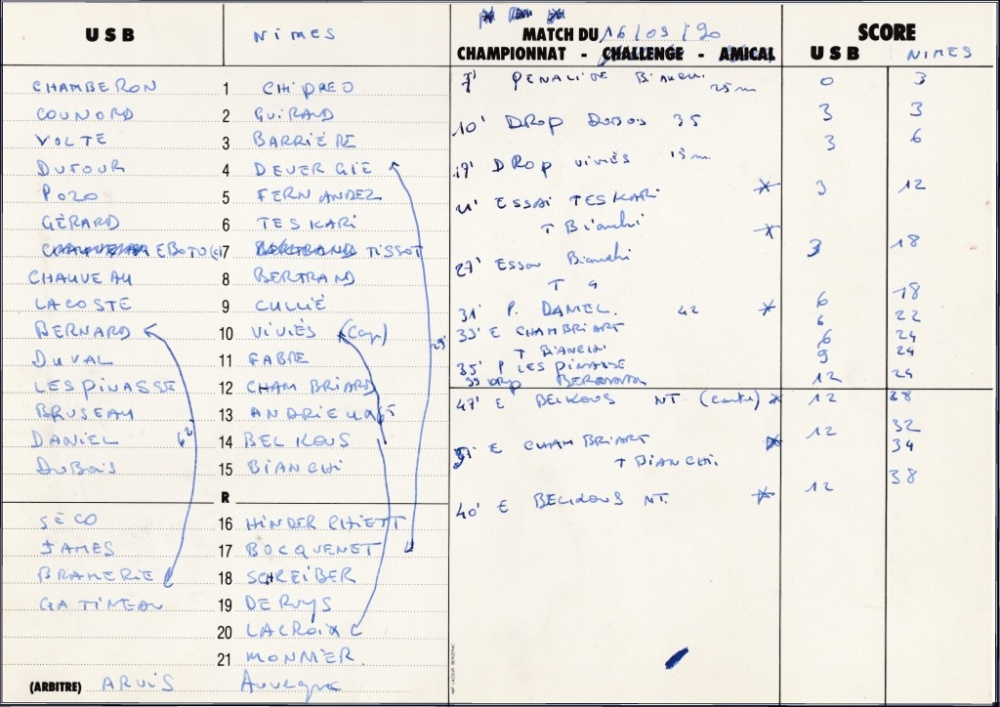 USB NIMES
CHAMBERON 1 CHIPREO
COUNORD 2 GUIRAND
VOLTE 3 BARRIÈRE
DUFOUR 4 DEVERGIE
POZO 5 FERNANDEZ
GÉRARD 6 TESKARI
7 BERTRAND TISSOT
CHAUVEAU 8 BERTRAND
LACOSTE 9 CULLIÉ
BERNARD 10 VIVIÉS (Cap)
DUVAL 11 FABRE
LESPINASSE 12 CHAMBRIARD
BRUSEAU 13
DANIEL 14 BELKOUS
DUBOIS 15 BIANCHI
R
SÉCO 16
JAMES 17 BOCQUENET
BRAMERIE 18 SCHREIBER
GATINEAU 19
20 LACROIX C
21 MONNIER.
(ARBITRE) ARVIS Auvergne
MATCH DU 16/09/90 SCORE
CHAMPIONNAT - CHALLENGE - AMICAL USB NIMES
7' PENALITE Bianchi 25m 0 3
10' DROP DUBOIS 35 3 3
17' DROP VIVIÉS 15m 3 6
21' ESSAI TESKARI 3 12
T Bianchi
27' Essai Bianchi 3 18
T "
31' P. DANIEL. 42 6 18
33' E CHAMBRIART 6 22
T BIANCHI 6 24
35' P LESPINASSE 9 24
drop BERNARD 12 24
47' E BELKOUS NT 12 28
12 32
E CHAMBRIART 34
T BIANCHI
40' E BELKOUS NT. 12 38